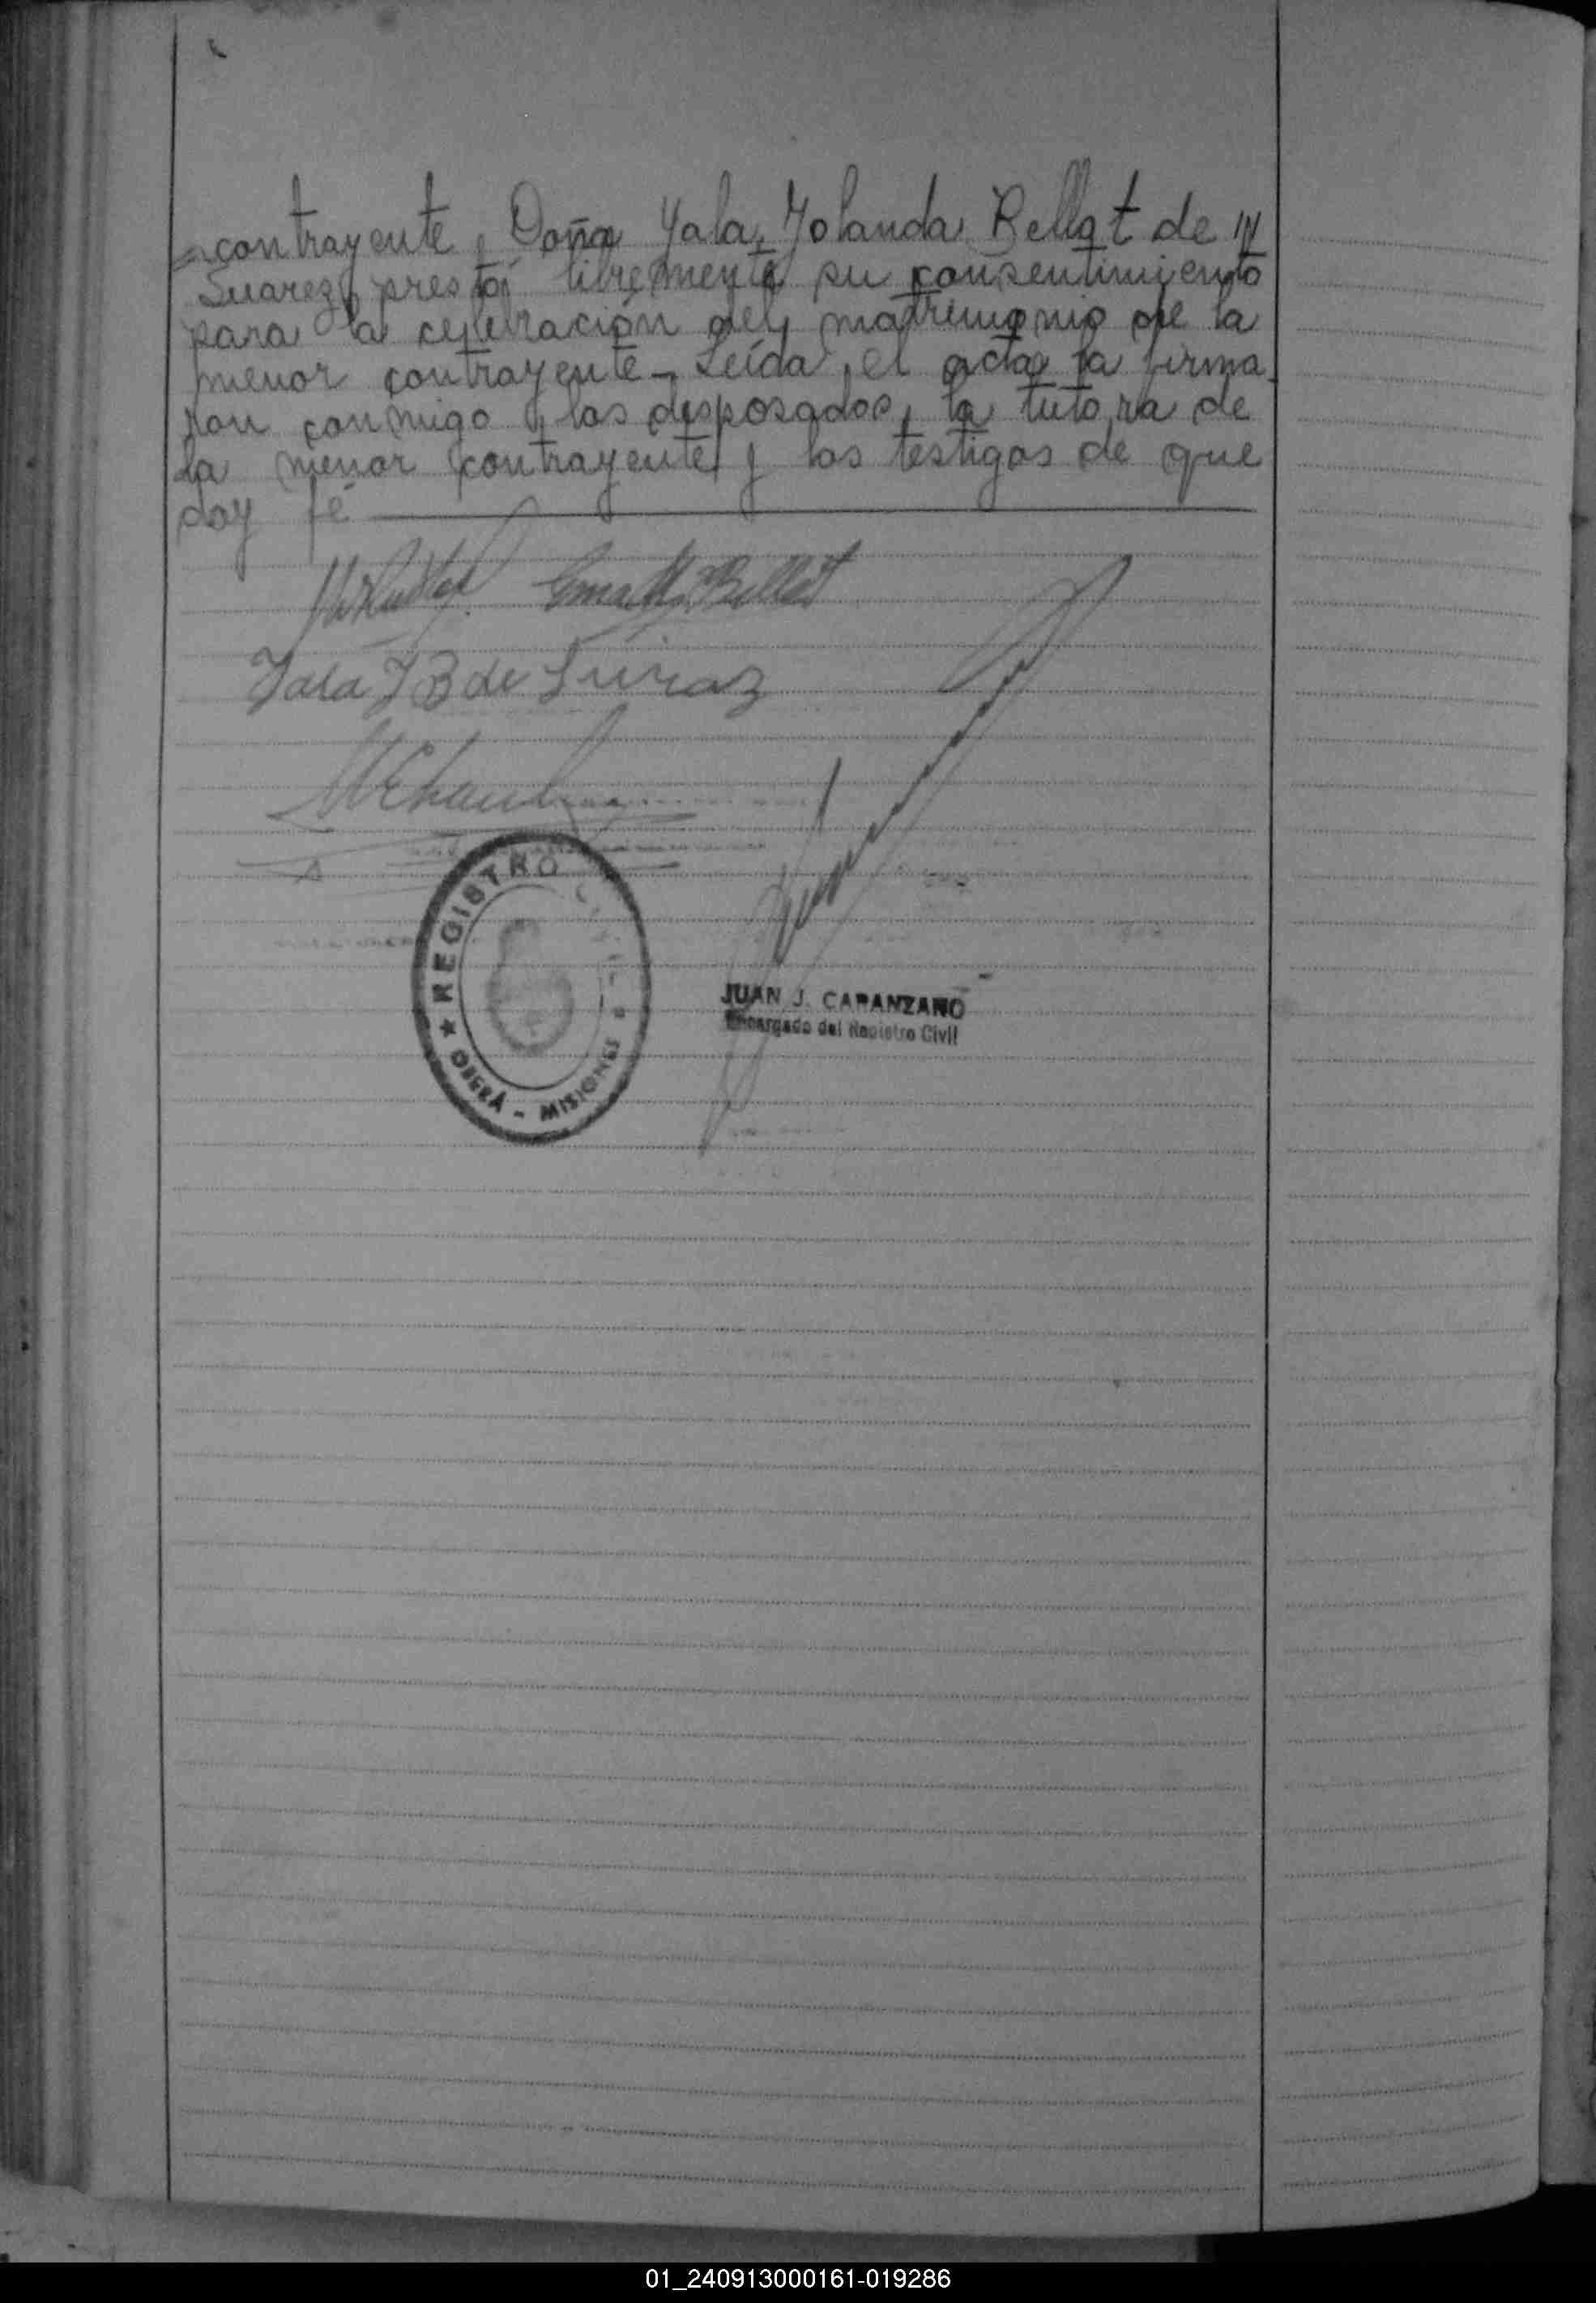 contrayente, Doña Yala Yolanda Bellat de
Suarez, prestó libremente su consentimiento
para la celebración del matrimonio de la
menor contrayente - Leída el acta la firma
ron conmigo los desposados, la tutora de
la menor contrayente y los testigos de que
doy fé
Yala Y B de
REGISTRO
★ OBERÁ - MISIONES
JUAN J. CARANZANO
Encargado del Registro Civil
01_240913000161-019286